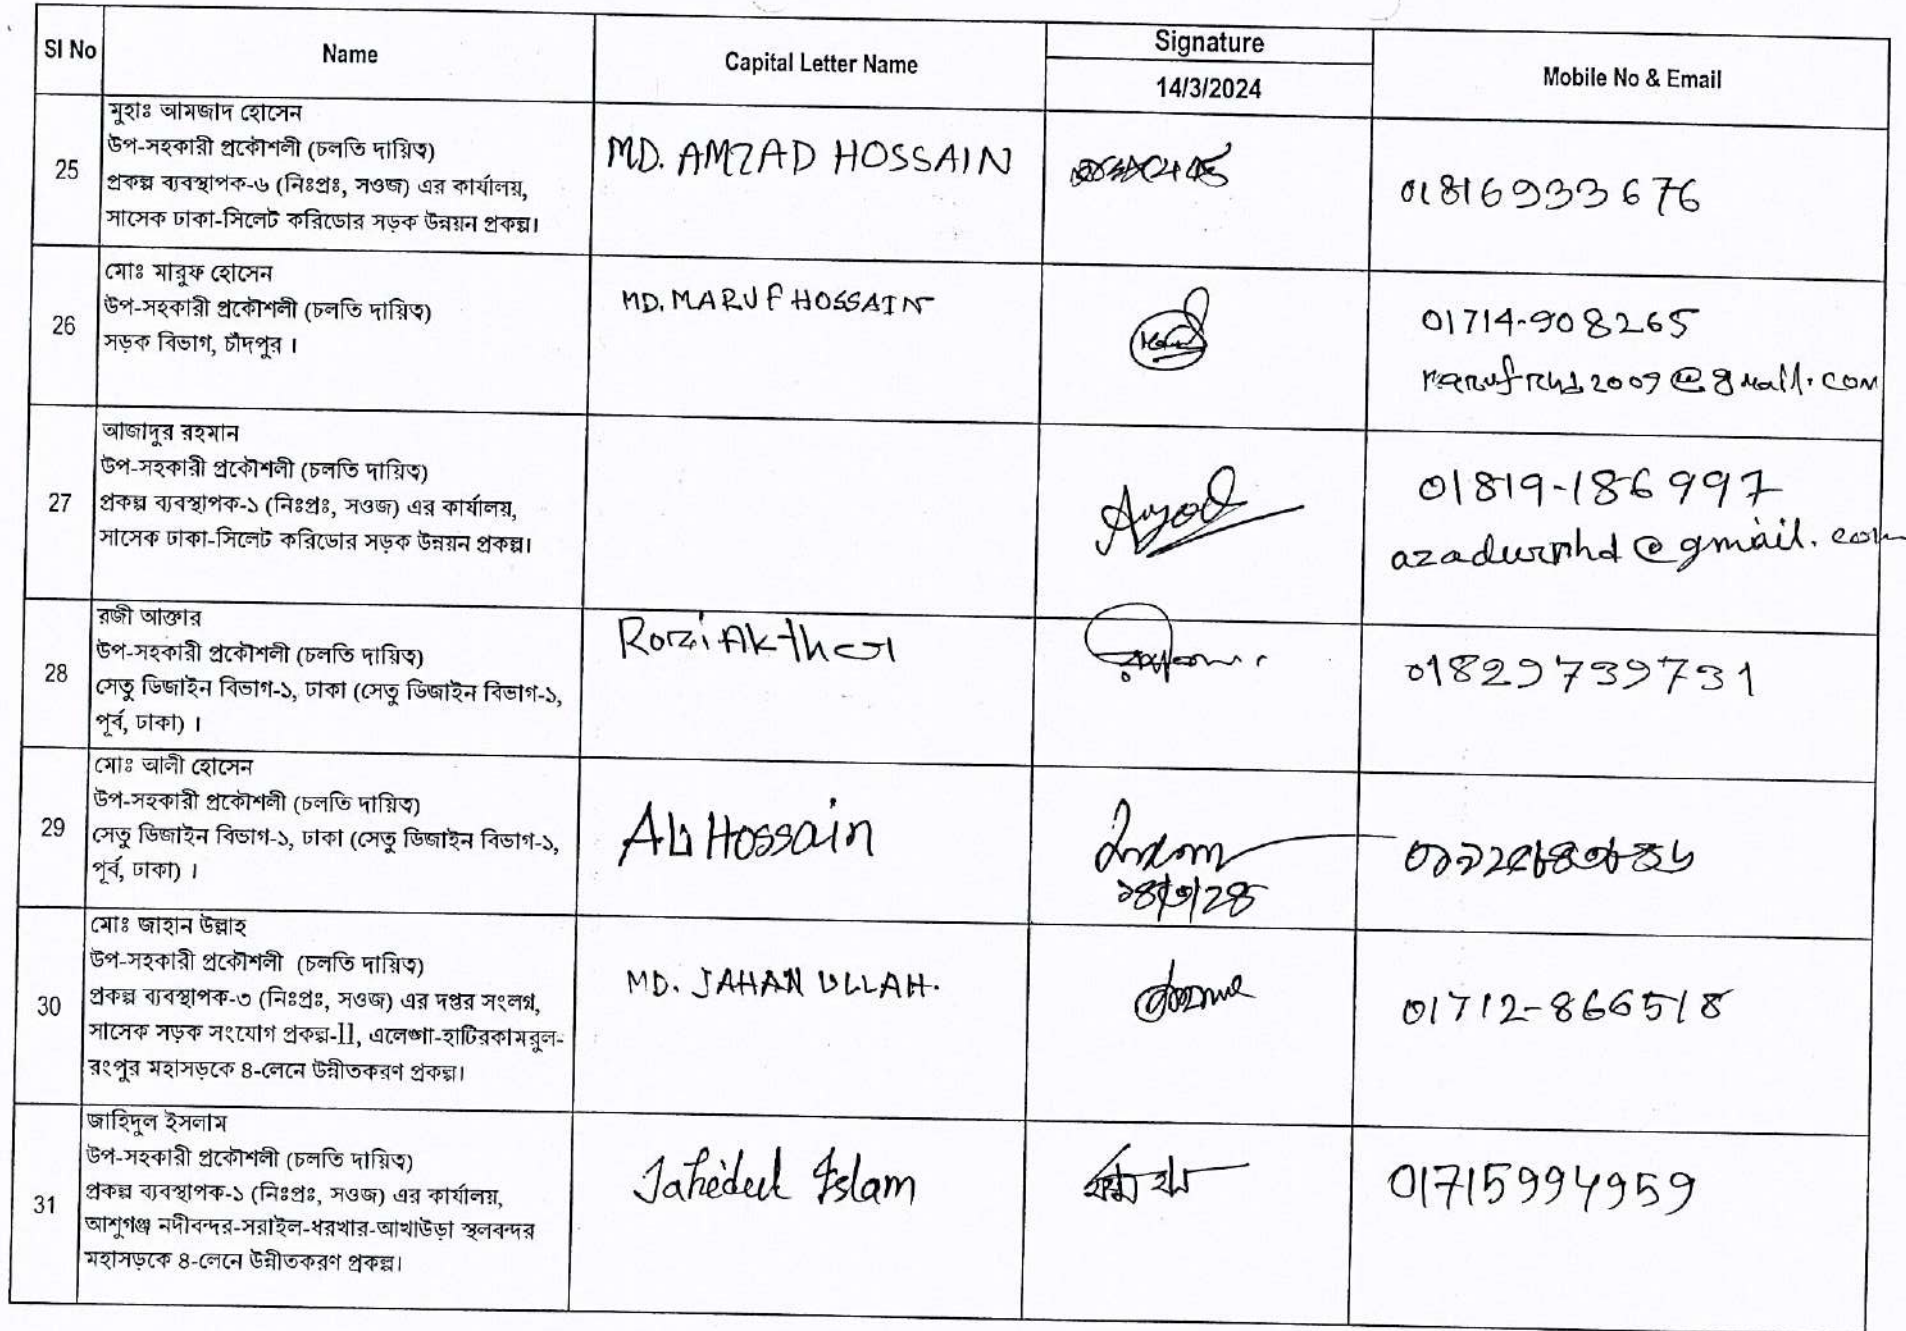 Sl No
Name
Capital Letter Name
Signature
14/3/2024
Mobile No & Email
25
মুহাঃ আমজাদ হোসেন
উপ-সহকারী প্রকৌশলী (চলতি দায়িত্ব)
প্রকল্প ব্যবস্থাপক-৬ (নিঃপ্রঃ, সওজ) এর কার্যালয়,
সাসেক ঢাকা-সিলেট করিডোর সড়ক উন্নয়ন প্রকল্প।
MD. AMZAD HOSSAIN
01816933676
26
মোঃ মারুফ হোসেন
উপ-সহকারী প্রকৌশলী (চলতি দায়িত্ব)
সড়ক বিভাগ, চাঁদপুর ।
MD. MARUF HOSSAIN
01714-908265
marufrhd2009@gmail.com
27
আজাদুর রহমান
উপ-সহকারী প্রকৌশলী (চলতি দায়িত্ব)
প্রকল্প ব্যবস্থাপক-১ (নিঃপ্রঃ, সওজ) এর কার্যালয়,
সাসেক ঢাকা-সিলেট করিডোর সড়ক উন্নয়ন প্রকল্প।
01819-186997
azadurrhd@gmail.com
28
রজী আক্তার
উপ-সহকারী প্রকৌশলী (চলতি দায়িত্ব)
সেতু ডিজাইন বিভাগ-১, ঢাকা (সেতু ডিজাইন বিভাগ-১,
পূর্ব, ঢাকা) ।
01829739731
29
মোঃ আলী হোসেন
উপ-সহকারী প্রকৌশলী (চলতি দায়িত্ব)
সেতু ডিজাইন বিভাগ-১, ঢাকা (সেতু ডিজাইন বিভাগ-১,
পূর্ব, ঢাকা) ।
Ali Hossain
30
মোঃ জাহান উল্লাহ
উপ-সহকারী প্রকৌশলী (চলতি দায়িত্ব)
প্রকল্প ব্যবস্থাপক-৩ (নিঃপ্রঃ, সওজ) এর দপ্তর সংলগ্ন,
সাসেক সড়ক সংযোগ প্রকল্প-II, এলেঙ্গা-হাটিরকামরুল-
রংপুর মহাসড়কে ৪-লেনে উন্নীতকরণ প্রকল্প।
MD. JAHAN ULLAH.
01712-866518
31
জাহিদুল ইসলাম
উপ-সহকারী প্রকৌশলী (চলতি দায়িত্ব)
প্রকল্প ব্যবস্থাপক-১ (নিঃপ্রঃ, সওজ) এর কার্যালয়,
আশুগঞ্জ নদীবন্দর-সরাইল-ধরখার-আখাউড়া স্থলবন্দর
মহাসড়কে ৪-লেনে উন্নীতকরণ প্রকল্প।
Jahedul Islam
01715994959